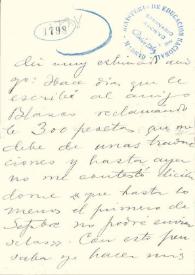 1798
MINISTERIO DE EDUCACION NACIONAL
Mi muy estimado ami-
go: Hace días que le
escribí al amigo
Blanas reclamando
le 300 pesetas que me
debe de unas traduc
ciones y hasta ayer
no me contestó dicién
dome que hasta lo
menos el primero de
Sepbre no podrá envia
relas. Con esto pen
saba yo hacer mis